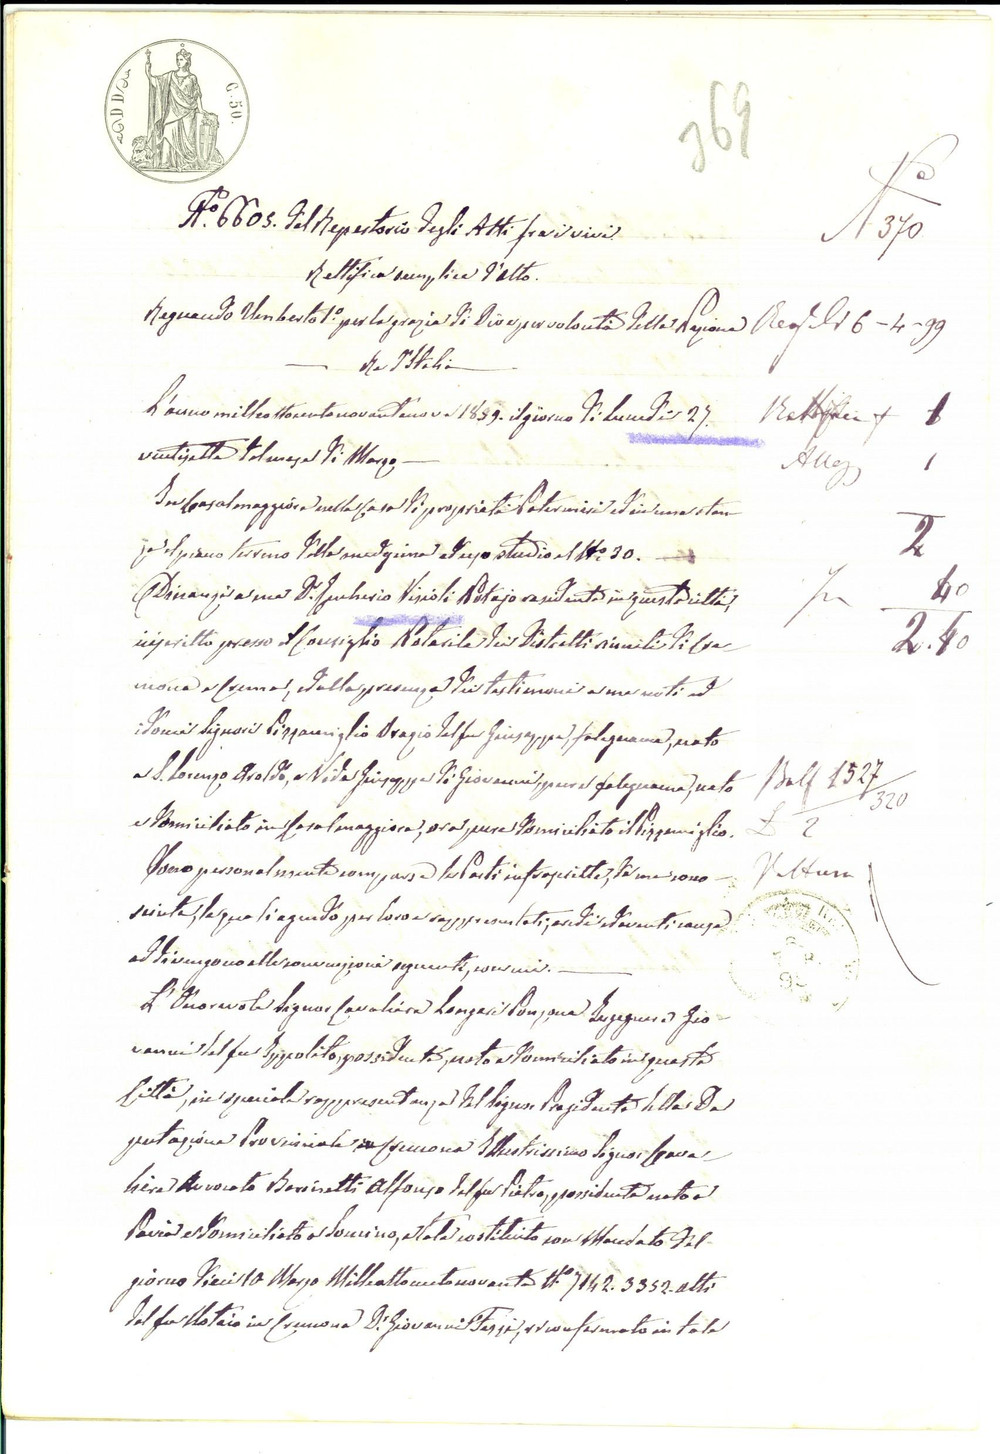 ADDƆ
C. 50.
369
N° 370
N.° 6603. del Repertorio degli Atti fra i vivi
Rettifica semplice d'atto.
Regnando Umberto I° per la grazia di Dio e per volontà della Nazione
Re d'Italia
6-4-99
L'anno mille ottocento novantanove 1899. il giorno di Lunedì 27.
ventisette del mese di Marzo
Rettifica 1
Alleg 1
2
40
2.40
In Casalmaggiore nella Casa di proprietà ed in una stan-
za al piano terreno della medesima ad uso studio al N° 30.
Dinanzi a me D.r Vispoli Notajo residente in questa città,
inscritto presso il Consiglio Notarile dei Distretti riuniti di Cre-
mona e Crema, e dalla presenza dei testimoni a me noti ed
idonei Signori Pizzamiglio Orazio del fu Giuseppe, falegname, nato
a S. Lorenzo Aroldo, e Vida Giuseppe di Giovanni, pure falegname, nato
e domiciliato in Casalmaggiore, ora pure domiciliato il Pizzamiglio.
1527
320
£ 2
Sono personalmente comparse le Parti infrascritte, da me cono-
sciute, le quali agendo per loro e rappresentati, eredi ed aventi causa
addivengono alle convenzioni seguenti, cioè
L'Onorevole Signor Cavaliere Longari Ponzone Ingegnere Gio-
vanni del fu Ippolito, possidente, nato e domiciliato in questa
Città, in speciale rappresentanza del Signor Presidente della De
putazione Provinciale in Cremona Illustrissimo Signor Cava
liere Avvocato Alfonso del fu Pietro, possidente nato a
Pavia e domiciliato a Soncino, e tale costituito con Mandato del
giorno dieci 10 Marzo Milleottocentonovanta N° 7142. 3352 atti
del fu Notaio in Cremona D.r Giovanni riconfermato in tale